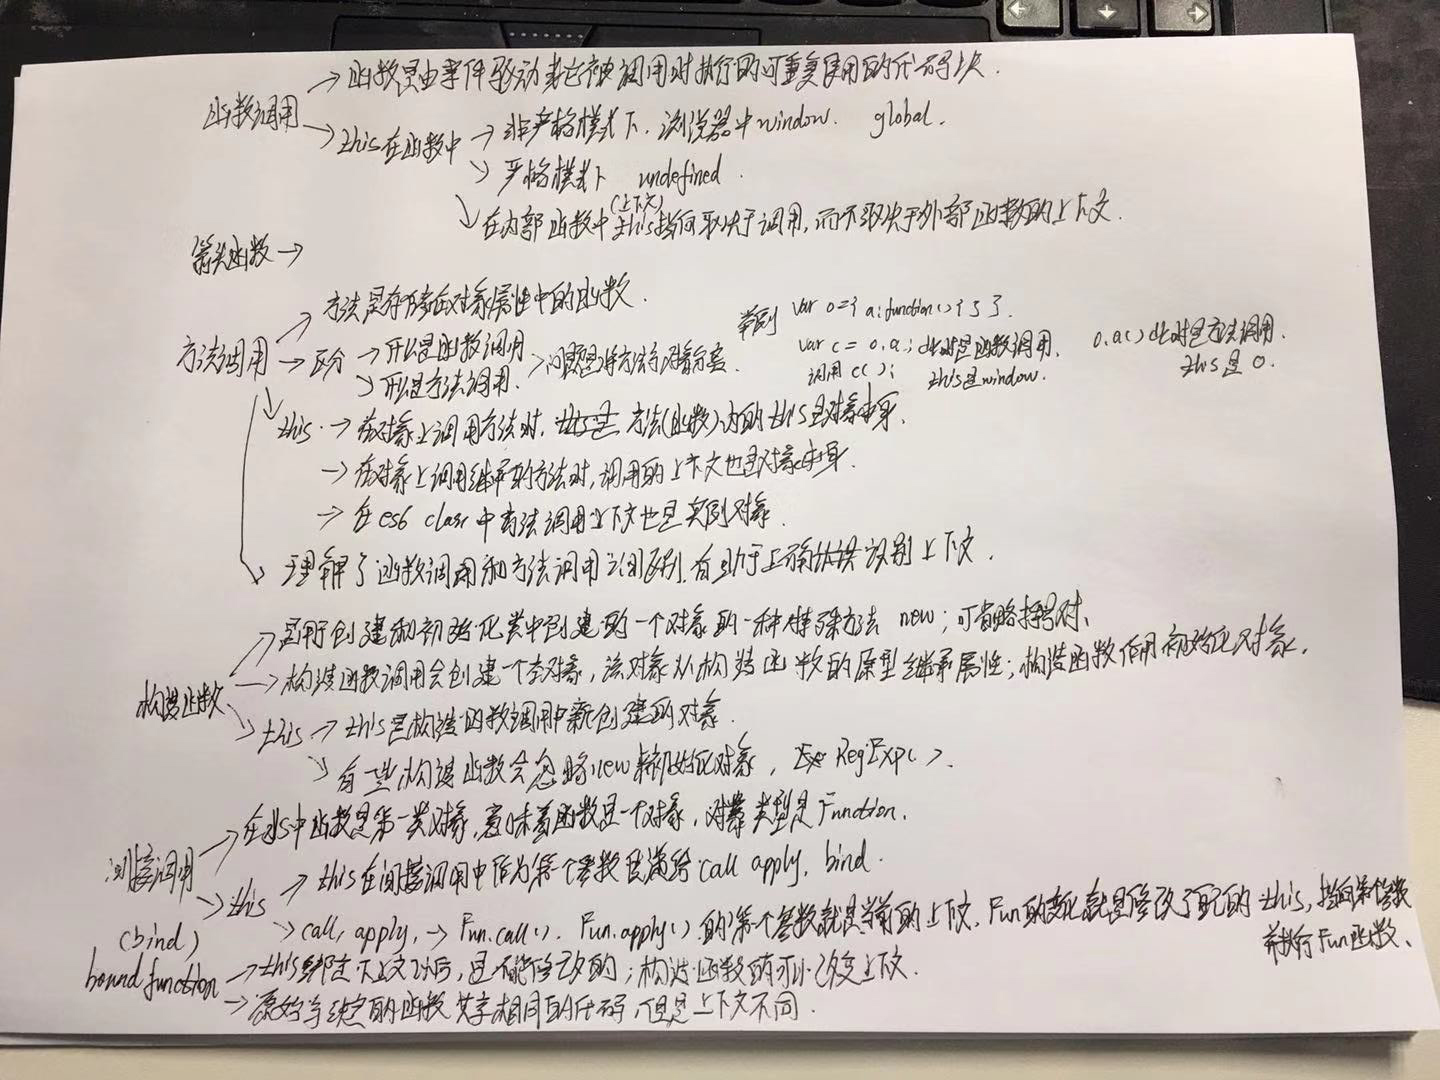 → 函数是由事件驱动或它被调用时执行的可重复使用的代码块.
函数调用
→ this在函数中 → 非严格模式下, 浏览器中window. global.
↘ 严格模式下 undefined.
(上下文)
↘ 在内部函数中this指向取决于调用, 而不取决于外部函数的上下文.
箭头函数 →
方法是存储在对象属性中的函数.
举例 var o={ a: function(){ } }.
方法调用 → 区分 → 什么是函数调用 > 问题是将方法与对象分离.
↘ 什么是方法调用.
var c = o.a; 此时是函数调用. o.a() 此时是方法调用.
调用 c(); this是window. this是o.
this. → 在对象上调用方法时, 方法(函数)内的this是对象本身.
→ 在对象上调用继承的方法时, 调用的上下文也是对象本身.
→ 在es6 class中方法调用上下文也是实例对象.
理解了函数调用和方法调用之间区别, 有助于正确识别上下文.
是用于创建和初始化类中创建的一个对象的一种特殊方法 new; 可省略括号对.
构造函数 → 构造函数调用会创建一个空对象, 该对象从构造函数的原型继承属性; 构造函数作用初始化对象.
↘ this → this是构造函数调用中新创建的对象.
↘ 有一些构造函数会忽略new来初始化对象, RegExp().
在js中函数是第一类对象, 意味着函数是一个对象, 对象类型是Function.
间接调用
↘ this → this在间接调用中作为第一个参数传递给 call apply. bind.
→ call, apply, → Fun.call(). Fun.apply() 的第一个参数就是当前的上下文, Fun的变化就是修改了它的this, 指向第一个参数
并执行Fun函数.
(bind)
bound function → this绑定上下文以后, 是不能修改的; 构造函数时可以改变上下文.
→ 原始与绑定的函数共享相同的代码, 但是上下文不同.